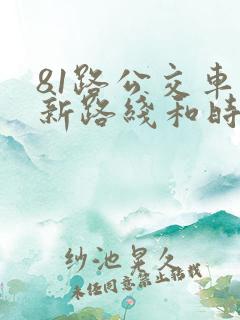 81路公交车
新路线和时
纱池晃久
未经同意禁止转载